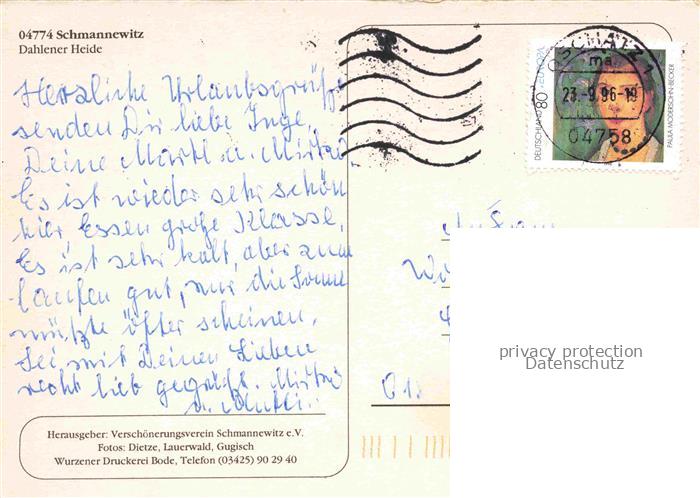 04774 Schmannewitz
Dahlener Heide
Herzliche Urlaubsgrüße
senden Dir liebe Inge,
Deine Martl u.
Es ist wieder sehr schön
hier, Essen große Klasse,
Es ist sehr kalt, aber zum
laufen gut, nur die Sonne
müßte öfter scheinen.
Sei mit Deinen Lieben
recht lieb gegrüßt.
u.
Herausgeber: Verschönerungsverein Schmannewitz e.V.
Fotos: Dietze, Lauerwald, Gugisch
Wurzener Druckerei Bode, Telefon (03425) 90 29 40
DEUTSCHLAND 80 EUROPA
PAULA MODERSOHN-BECKER
OSCHATZ 1
ma
23.-9.96-19
04758
An Frau
01
privacy protection
Datenschutz